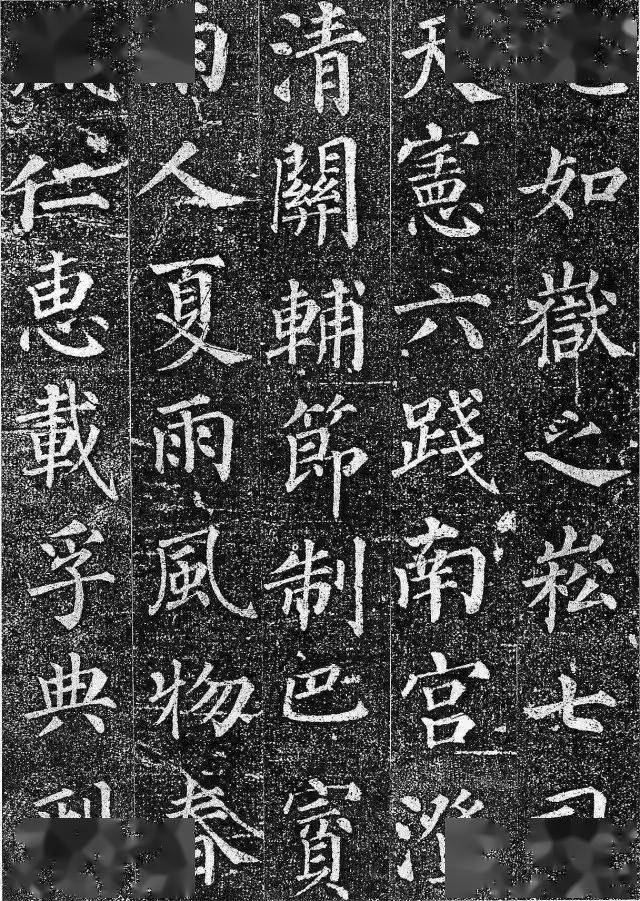 如嶽之崧七司
天憲六踐南宮澄
清關輔節制巴賨
雨人夏雨風物春
風仁惠載孚典